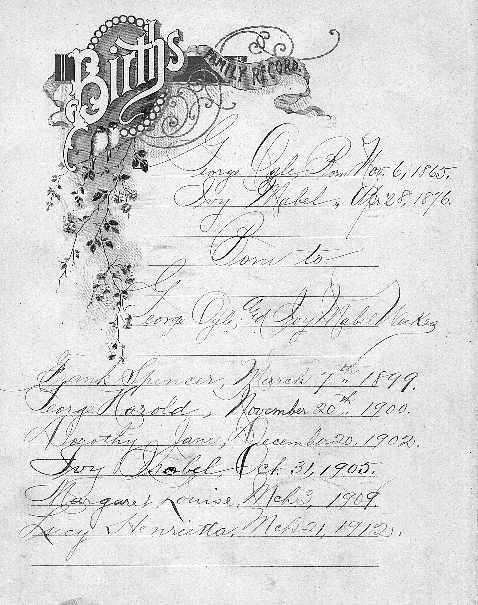 Births
FAMILY RECORD.
George Ogle, Born Nov. 6, 1865.
Ivy Mabel, " Apr 28, 1876.
Born to
George Ogle, and Ivy Mabel
Frank Spencer, March 7th 1899.
George Harold, November 20th 1900.
Dorothy Jane, December 20, 1902.
Ivy Isabel Oct. 31, 1905.
Margaret Louise, Mch 3, 1909.
Lucy Henrietta, Mch 21, 1912.